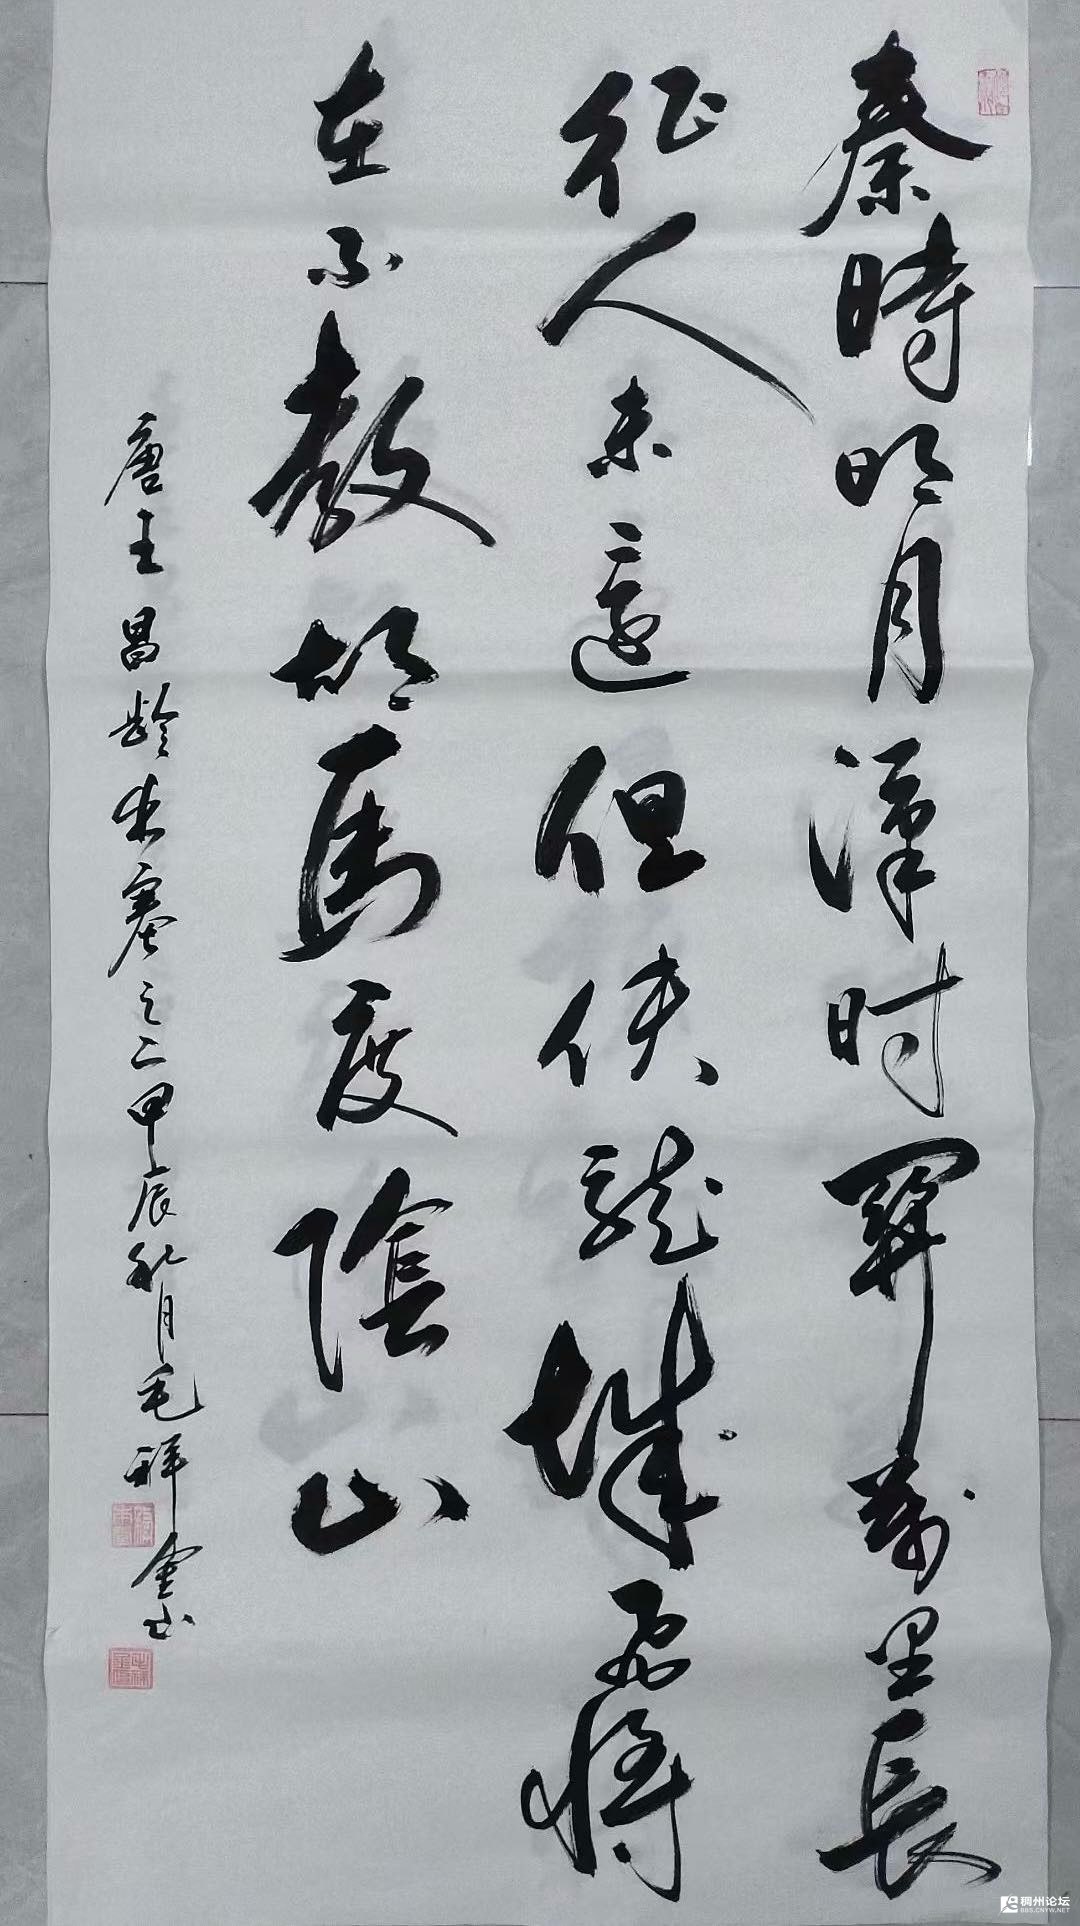 秦時明月漢时関萬里長
征人未還但使龍城飛將
在不教胡馬度陰山
唐王昌龄出塞之二甲辰秋月毛祥金书
稠州论坛
BBS.CNYW.NET